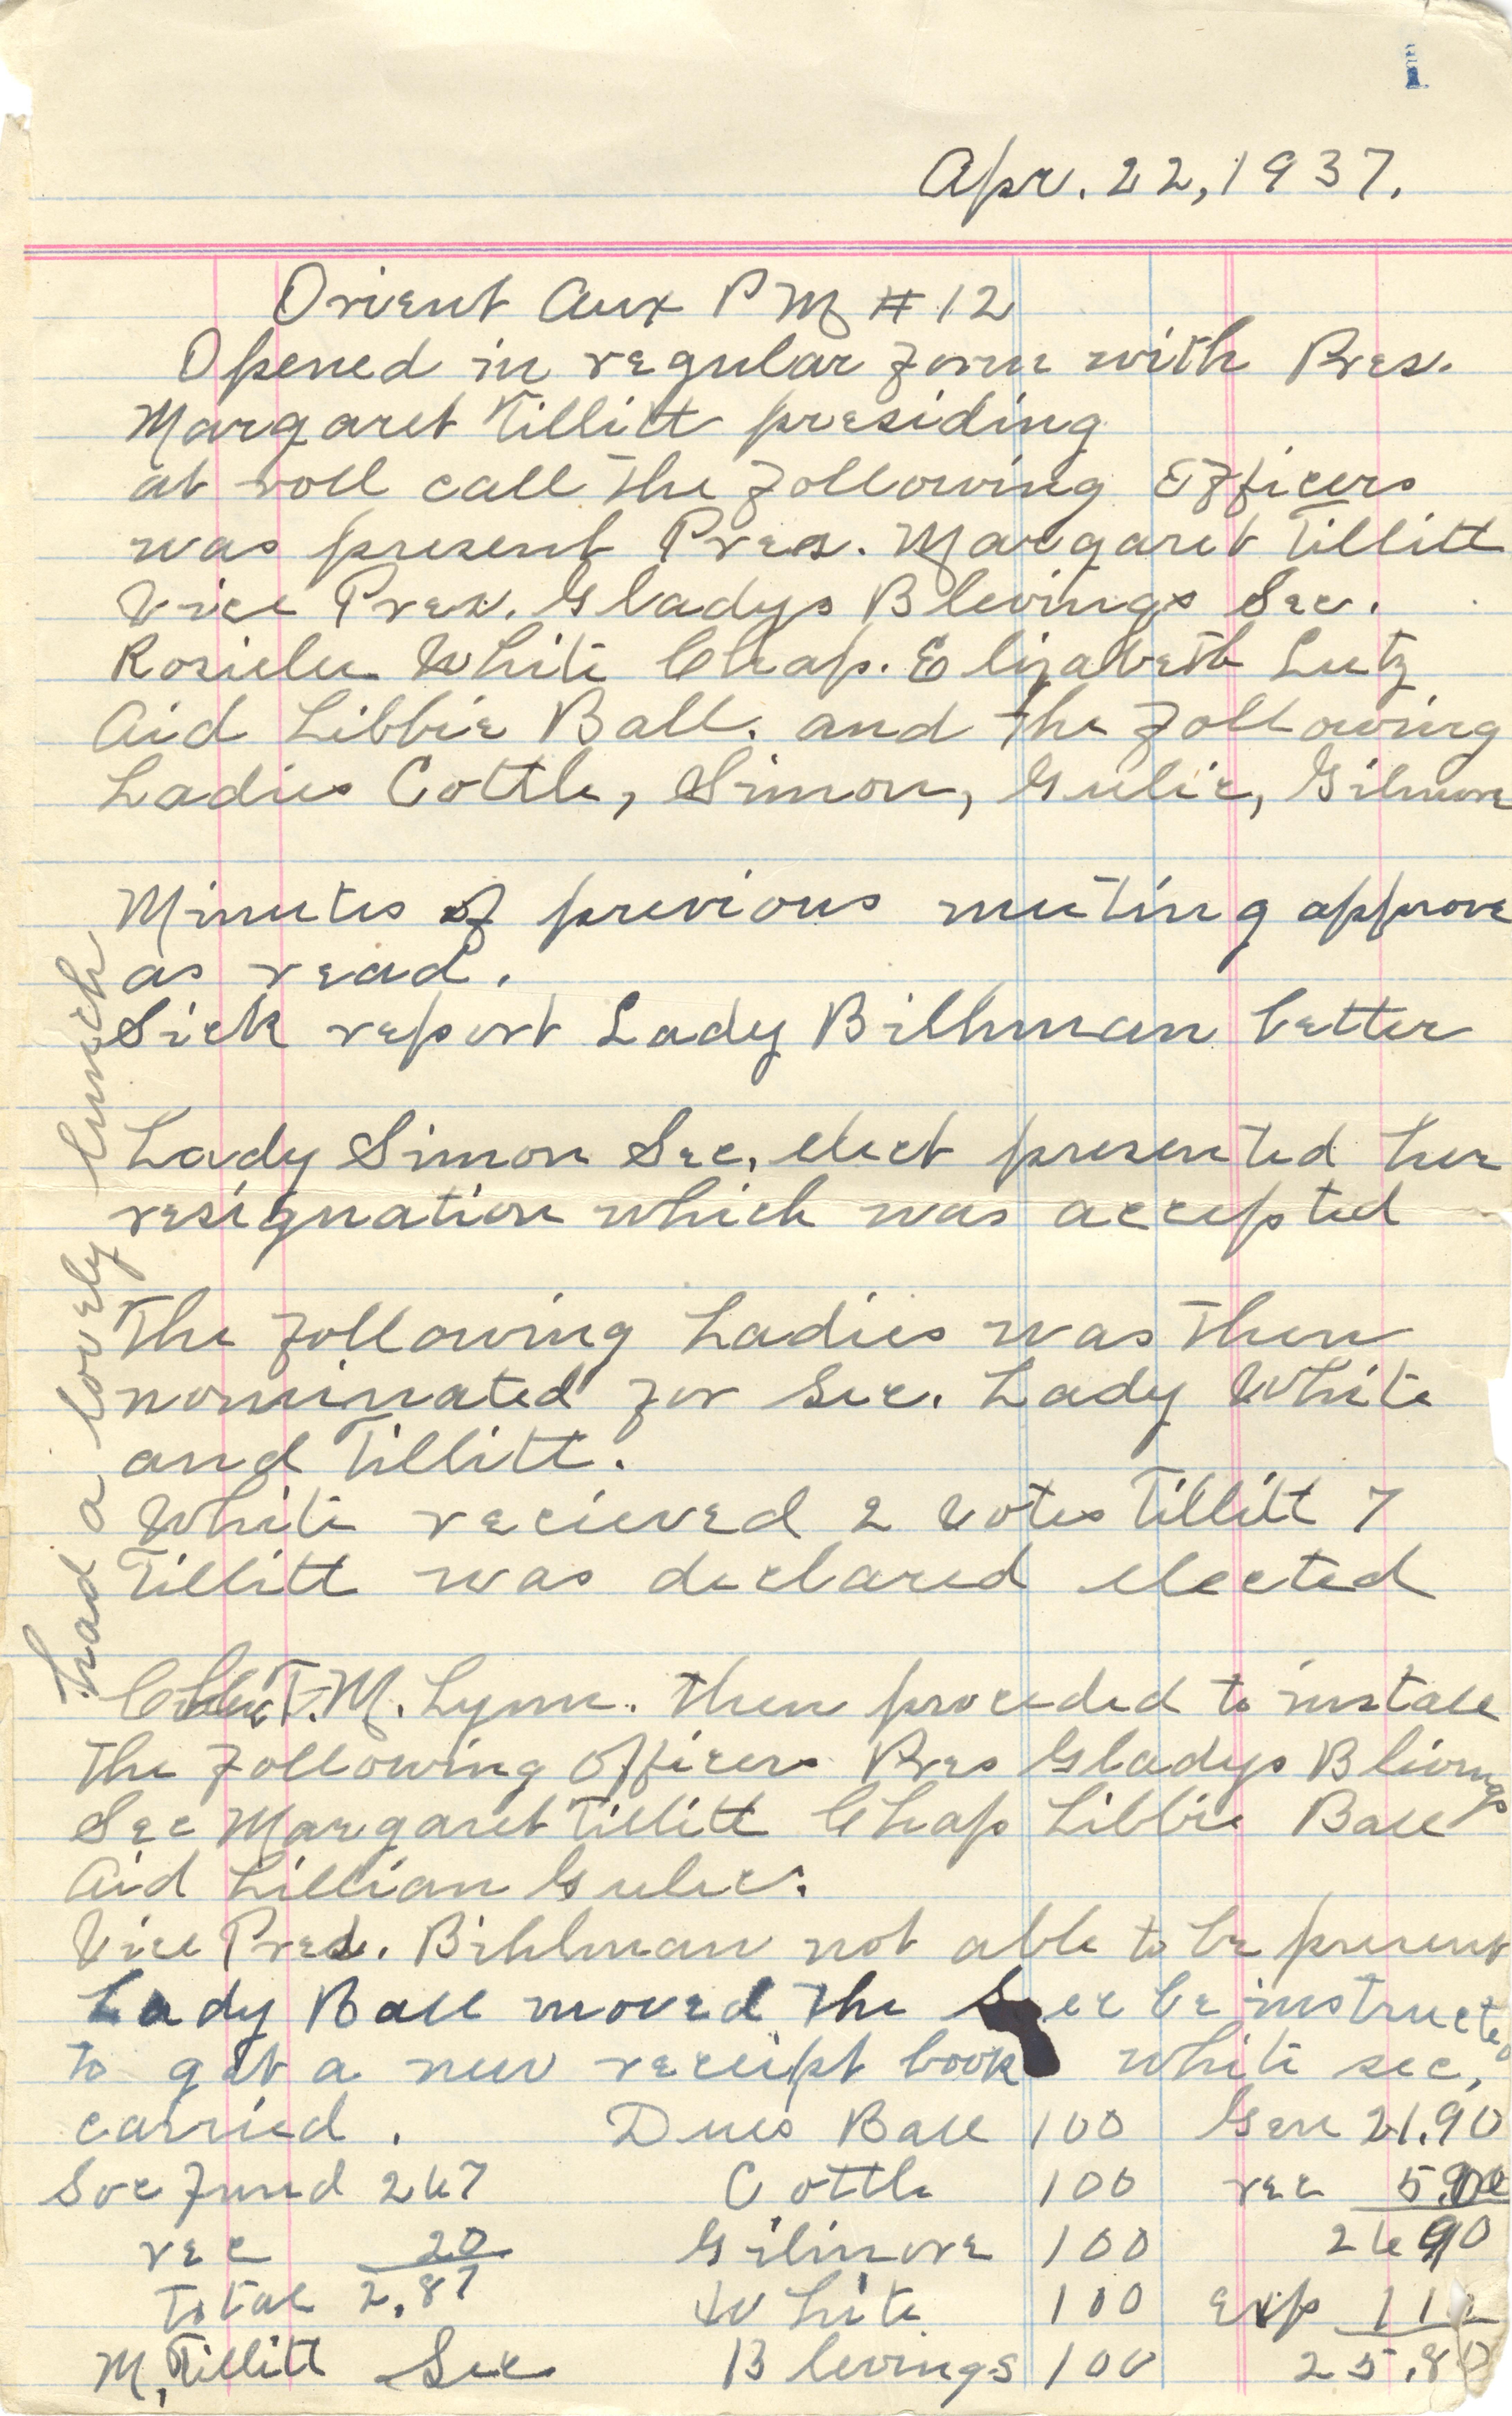 1
Apr. 22, 1937.
Orient Aux P M # 12
Opened in regular form with Pres.
Margaret Tillitt presiding
at roll call the following Officers
was present Pres. Margaret Tillitt
Vice Pres. Gladys Blevings Sec.
White Chap. Elizabeth Lutz
Aid Libbie Ball. and the following
Ladies Cottle, Simon, Gulic, Gilmore
Minutes of previous meeting approve
as read.
Sick report Lady Bilhman better
Lady Simon Sec. elect presented her
resignation which was accepted
The following Ladies was then
nominated for Sec. Lady White
and Tillitt.
White recieved 2 votes Tillitt 7
Tillitt was declared elected
T. M. Lynn. then proceded to install
the following Officers Pres Gladys Blivings
Sec Margaret Tillitt Chap Libbie Ball
Aid Lillian Gulic.
Vice Pres. Bihlman not able to be present
Lady Ball moved the Sec be instructed
to get a new receipt book White sec,
carried. Dues Ball 100 Gen 21.90
Soc fund 267 Cottle 100 rec 5.00
rec 20 Gilmore 100 26 90
total 2.87 White 100 exp
M, Tillitt Sec Blevings 100 25.8
had a lovely lunch